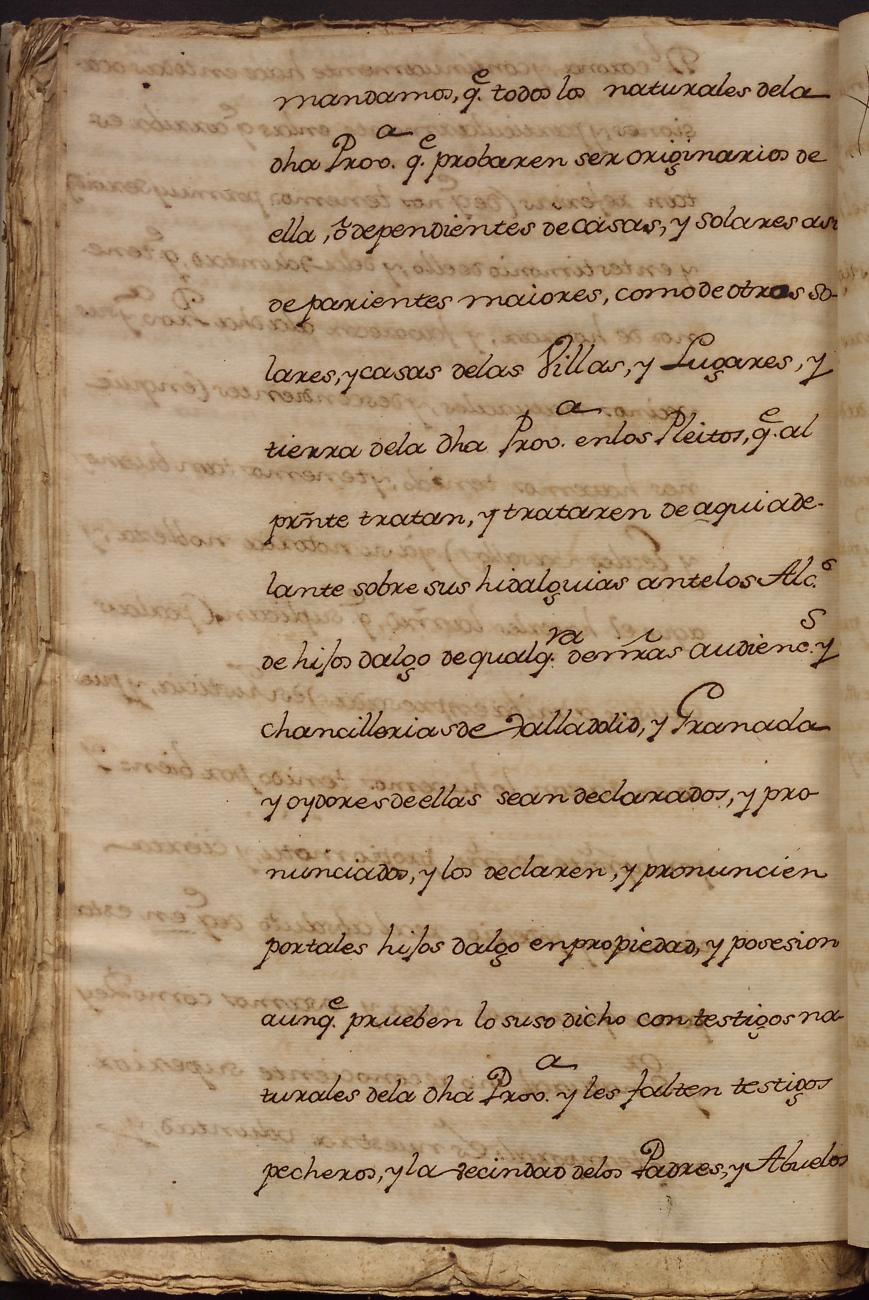 mandamos, q.e todos los naturales dela
dha Prov.a q.e probaren ser originarios de
ella, ô dependientes de casas, y solares asi
de parientes maiores, como de otros so-
lares, y casas delas Villas, y Lugares, y
tierra dela dha Prov.a enlos Pleitos, q.e al
prñte tratan, y trataren de aqui ade-
lante sobre sus hidalguias antelos Alc.s
de hijos dalgo de qualq.ra denr̃as audienc.s y
chancillerias de Valladolid, y Granada
y oydores de ellas sean declarados, y pro-
nunciados, y los declaren, y pronuncien
portales hijos dalgo en propiedad, y posesion
aunq.e prueben lo suso dicho con testigos na-
turales dela dha Prov.a y les falten testigos
pecheros, y la vecindad delos Padres, y Abuelos